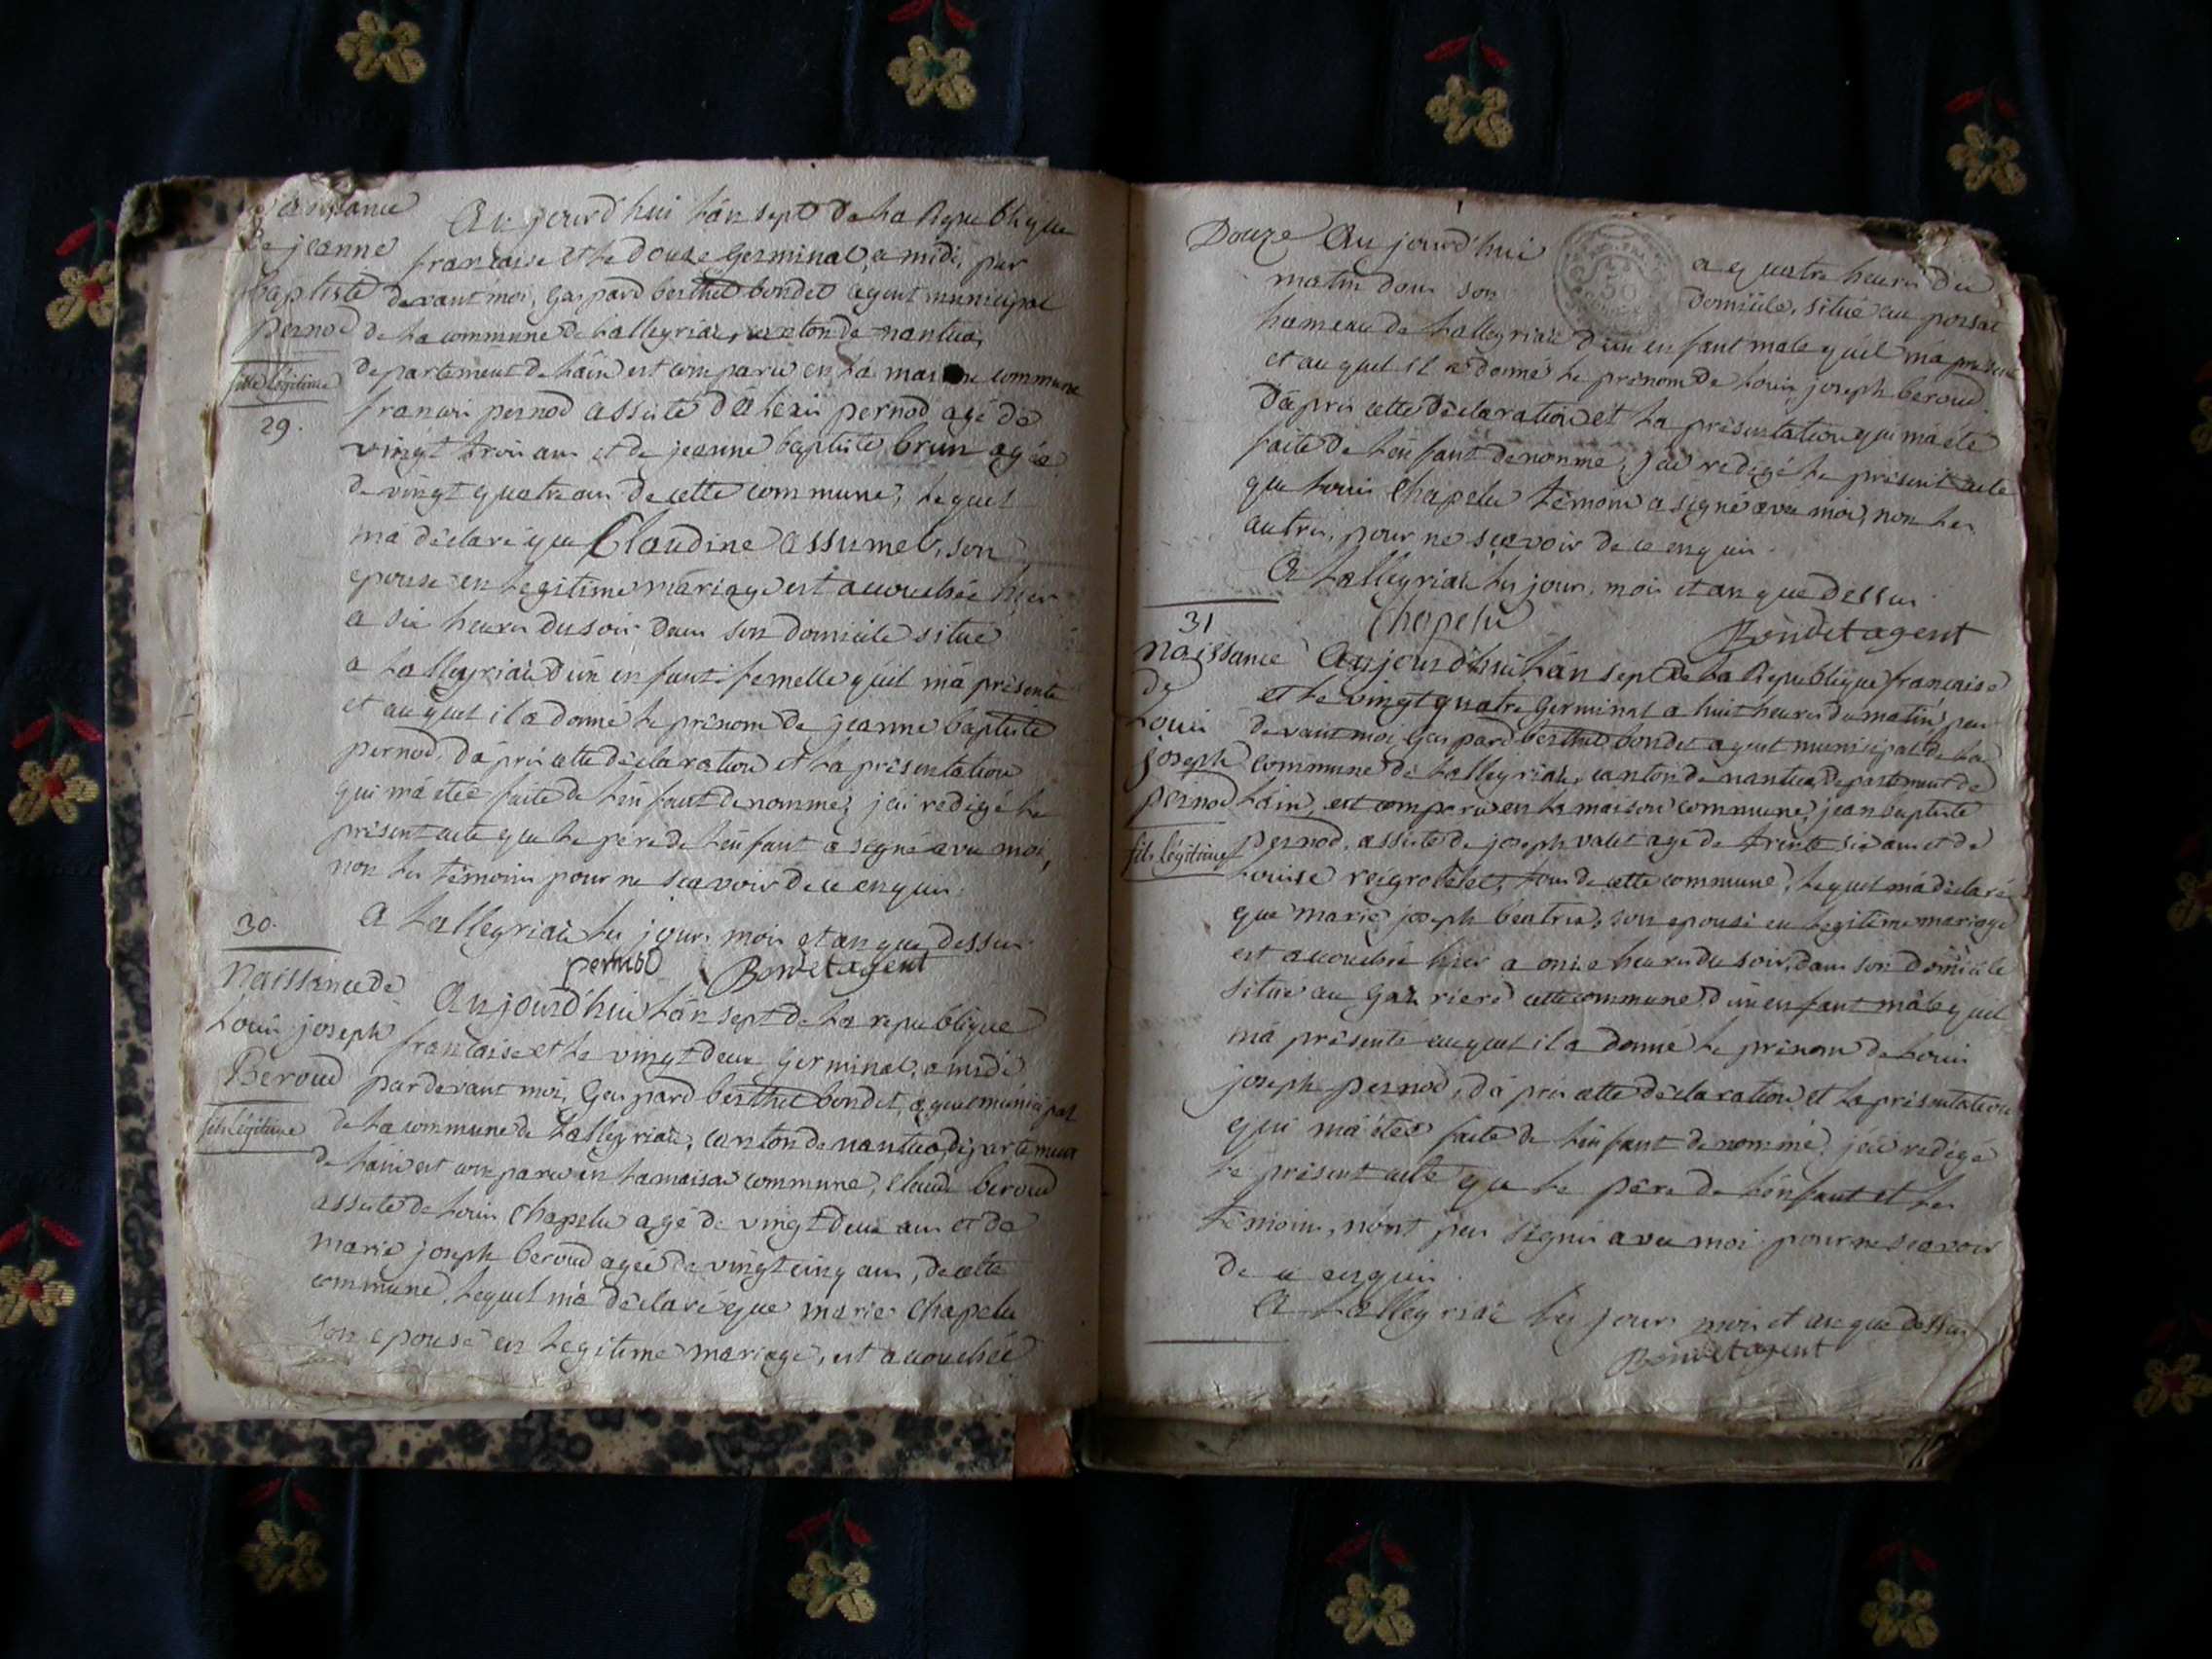 Naissance
de jeanne
baptiste
pernod
fille légitime
29.
Aujourd'hui l'an sept de la Republique
francaise et le douze germinal, a midi, par
devant moi, gaspard berthet bondet agent municipal
de la commune de Lalleyriat, canton de nantua,
departement de l'ain est comparu en la maison commune
francois pernod assisté d'alexis pernod agé de
vingt trois ans et de jeanne baptiste brun agée
de vingt quatre ans de cette commune, lequel
m'a déclaré que Claudine assumel, son
epouse en legitime mariage est accouchée hier
a six heures du soir dans son domicile situé
a Lalleyriat d'un enfant femelle qu'il m'a présenté
et auquel il a donné le prénom de jeanne baptiste
pernod, d'après cette déclaration et la présentation
qui m'a étée faite de l'enfant denommé, j'ai redigé le
présent acte que le père de l'enfant a signé avec moi,
non les témoins pour ne scavoir de ce enquis.
A Lalleyriat les jour, mois et an que dessus
pernod Bondet agent
30.
Naissance de
Louis joseph
Beroud
fils légitime
Aujourd'hui l'an sept de la republique
francaise et le vingt deux germinal, a midi
par devant moi, Gaspard berthet bondet, agent municipal
de la commune de Lalleyriat, canton de nantua, departement
de l'ain est comparu en la maison commune, Claude beroud
assisté de Louis Chapelu agé de vingt deux ans et de
marie joseph beroud agée de vingt cinq ans, de cette
commune, lequel m'a déclaré que marie Chapelu
son epouse en legitime mariage, est accouchée
Douze Aujourd'hui a quatre heures du
matin dans son domicile, situé au porsat
hameau de Lalleyriat d'un enfant male qu'il m'a présenté
et auquel il a donné le prénom de Louis joseph beroud.
D'après cette déclaration et la présentation qui m'a été
faite de l'enfant denommé, j'ai redigé le présent acte
que Louis Chapelu témoin a signé avec moi, non les
autres, pour ne scavoir de ce enquis.
A Lalleyriat les jour, mois et an que dessus.
Chapelu Bondet agent
31
Naissance
de
Louis
joseph
pernod
fils légitime
Aujourd'hui l'an sept de la Republique francaise
et le vingt quatre germinal a huit heures du matin, par
devant moi, gaspard berthet bondet agent municipal de la
commune de Lalleyriat, canton de nantua, departement de
l'ain, est comparu en la maison commune, jean baptiste
pernod, assisté de joseph valet agé de trente six ans et de
Louise reygrobelet, tous de cette commune, lequel m'a déclaré
que marie joseph béatrix, son epouse en legitime mariage
est accouchée hier a onze heures du soir, dans son domicile
situé au cette commune, d'un enfant mâle qu'il
m'a présenté auquel il a donné le prénom de Louis
joseph pernod, d'après cette déclaration et la présentation
qui m'a étée faite de l'enfant denommé, j'ai redigé
le présent acte que le père de l'enfant et les
témoins, n'ont pas signés avec moi pour ne scavoir
de ce enquis.
A Lalleyriat les jour, mois et an que dessus
Bondet agent